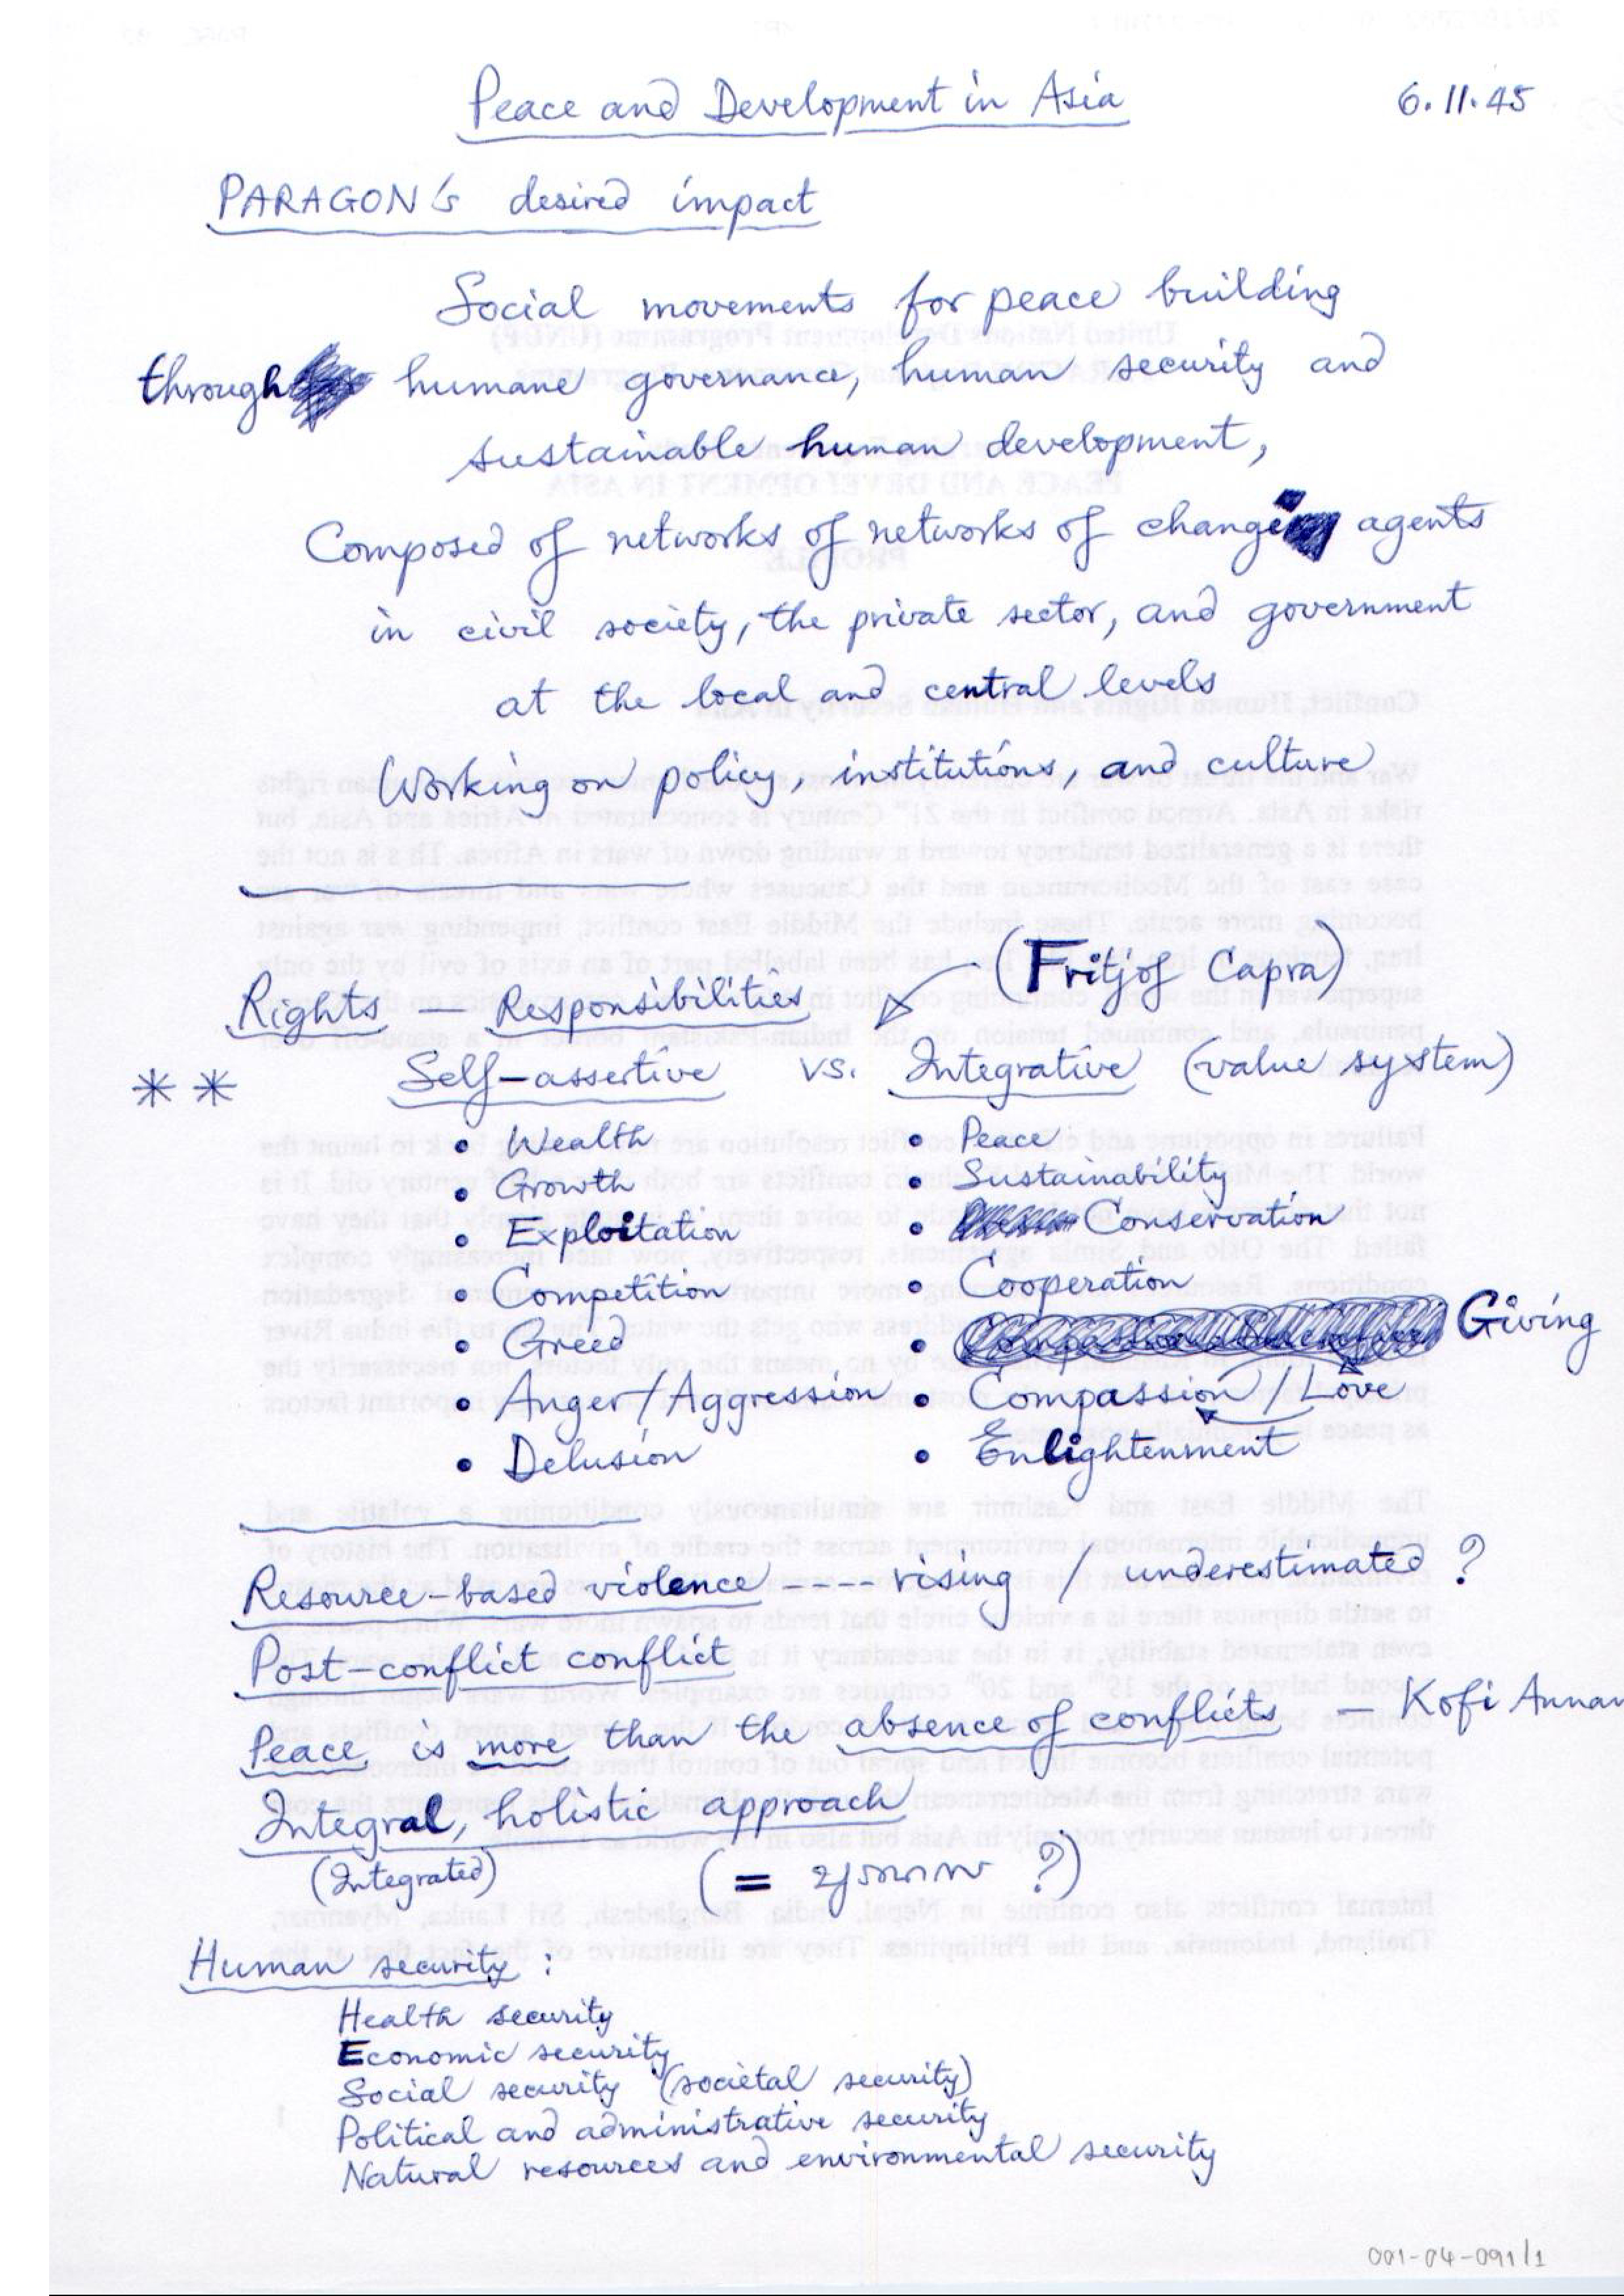 Peace and Development in Asia
6.11.45
PARAGON's desired impact
Social movements for peace building
through humane governance, human security and
sustainable human development,
Composed of networks of networks of change agents
in civil society, the private sector, and government
at the local and central levels
Working on policy, institutions, and culture
(Fritjof Capra)
Rights — Responsibilities
** Self-assertive vs. Integrative (value system)
• Wealth • Peace
• Growth • Sustainability
• Exploitation • Conservation
• Competition • Cooperation
• Greed • Giving
• Anger/Aggression • Compassion/Love
• Delusion • Enlightenment
Resource-based violence ---- rising / underestimated ?
Post-conflict conflict
Peace is more than the absence of conflicts — Kofi Annan
Integral, holistic approach
(Integrated) (= บูรณาการ ?)
Human security :
Health security
Economic security
Social security (societal security)
Political and administrative security
Natural resources and environmental security
001-04-091/1